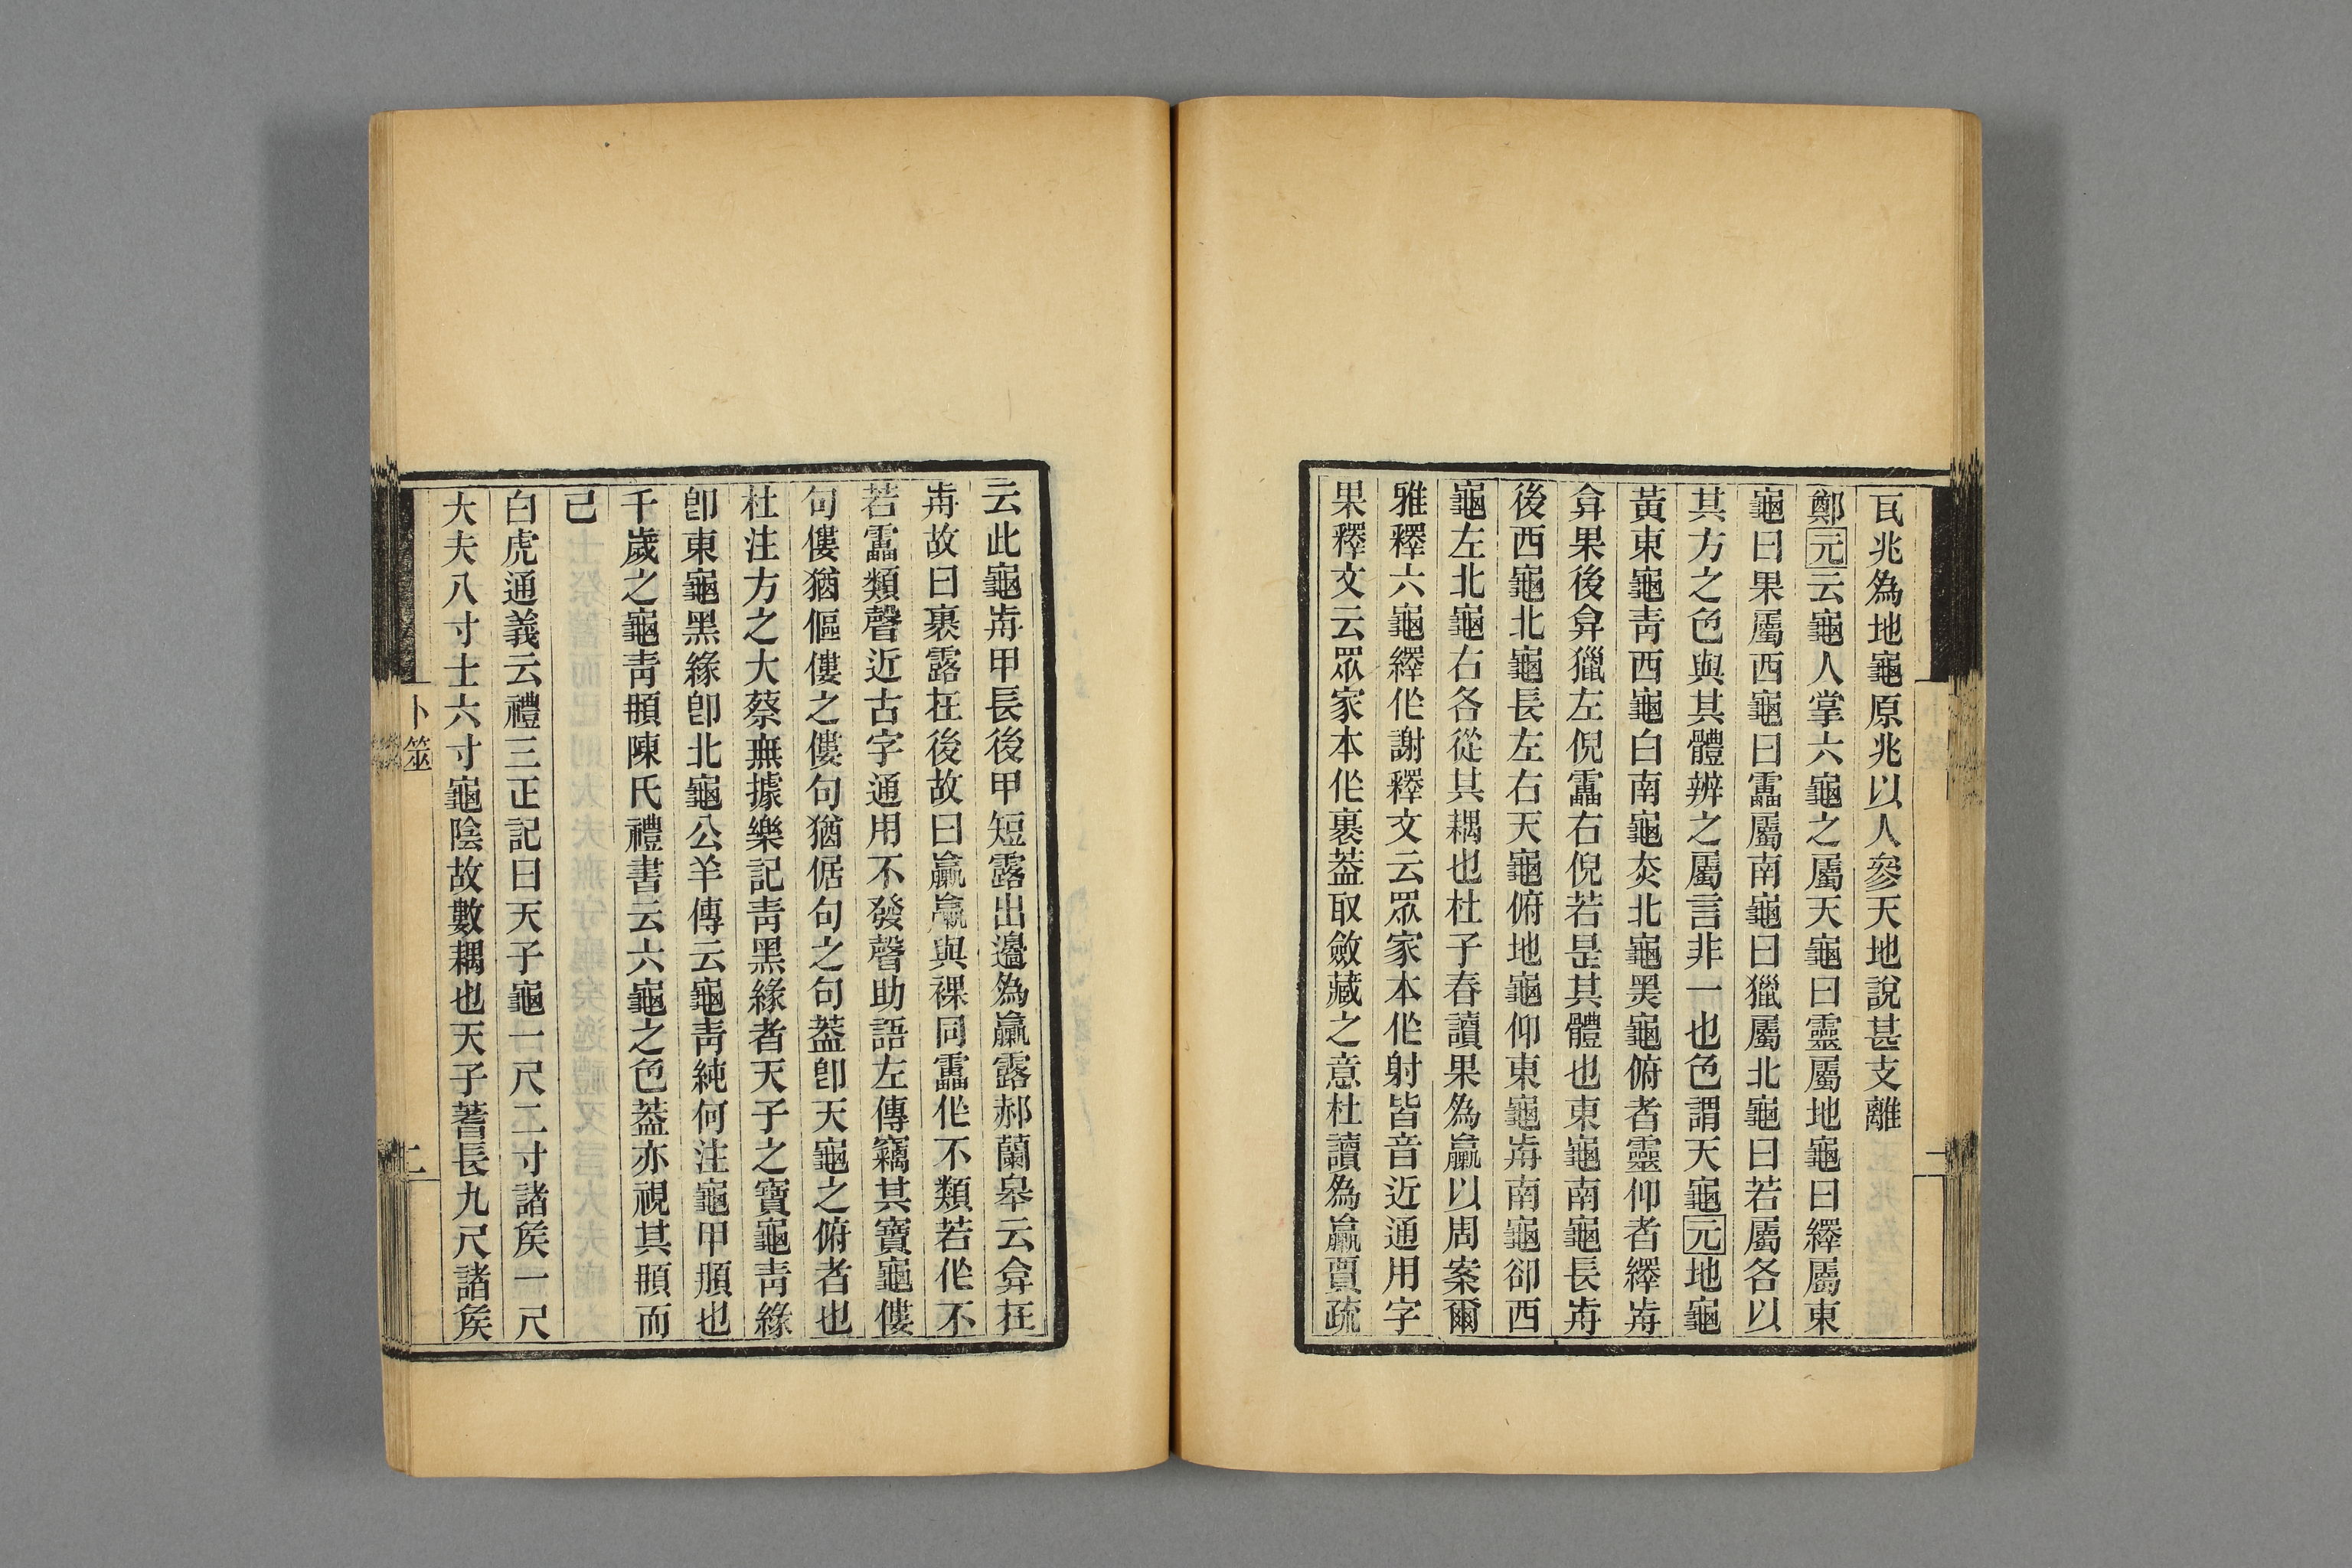 瓦兆為地龜原兆以人參天地說甚支離
鄭元云龜人掌六龜之屬天龜曰靈屬地龜曰繹屬東
龜曰果屬西龜曰靁屬南龜曰獵屬北龜曰若屬各以
其方之色與其體辨之屬言非一也色謂天龜元地龜
黃東龜靑西龜白南龜灻北龜黑龜俯者靈仰者繹歬
弇果後弇獵左倪靁右倪若是其體也東龜南龜長歬
後西龜北龜長左右天龜俯地龜仰東龜歬南龜卻西
龜左北龜右各從其耦也杜子春讀果為蠃以周案爾
雅釋六龜繹作謝釋文云眾家本作射皆音近通用字
果釋文云眾家本作裹葢取斂藏之意杜讀為蠃賈疏
云此龜歬甲長後甲短露出邉為蠃露郝蘭皋云弇在
歬故曰裹露在後故曰蠃蠃與裸同靁作不類若作不
若靁類聲近古字通用不發聲助語左傳竊其寶龜僂
句僂猶傴僂之僂句猶倨句之句葢卽天龜之俯者也
杜注方之大蔡無據樂記青黑緣者天子之寶龜靑緣
卽東龜黑緣卽北龜公羊傳云龜靑純何注龜甲䫇也
千歲之龜靑䫇陳氏禮書云六龜之色葢亦視其䫇而
已
白虎通義云禮三正記曰天子龜一尺二寸諸矦一尺
大夫八寸士六寸龜陰故數耦也天子蓍長九尺諸矦
卜筮
二